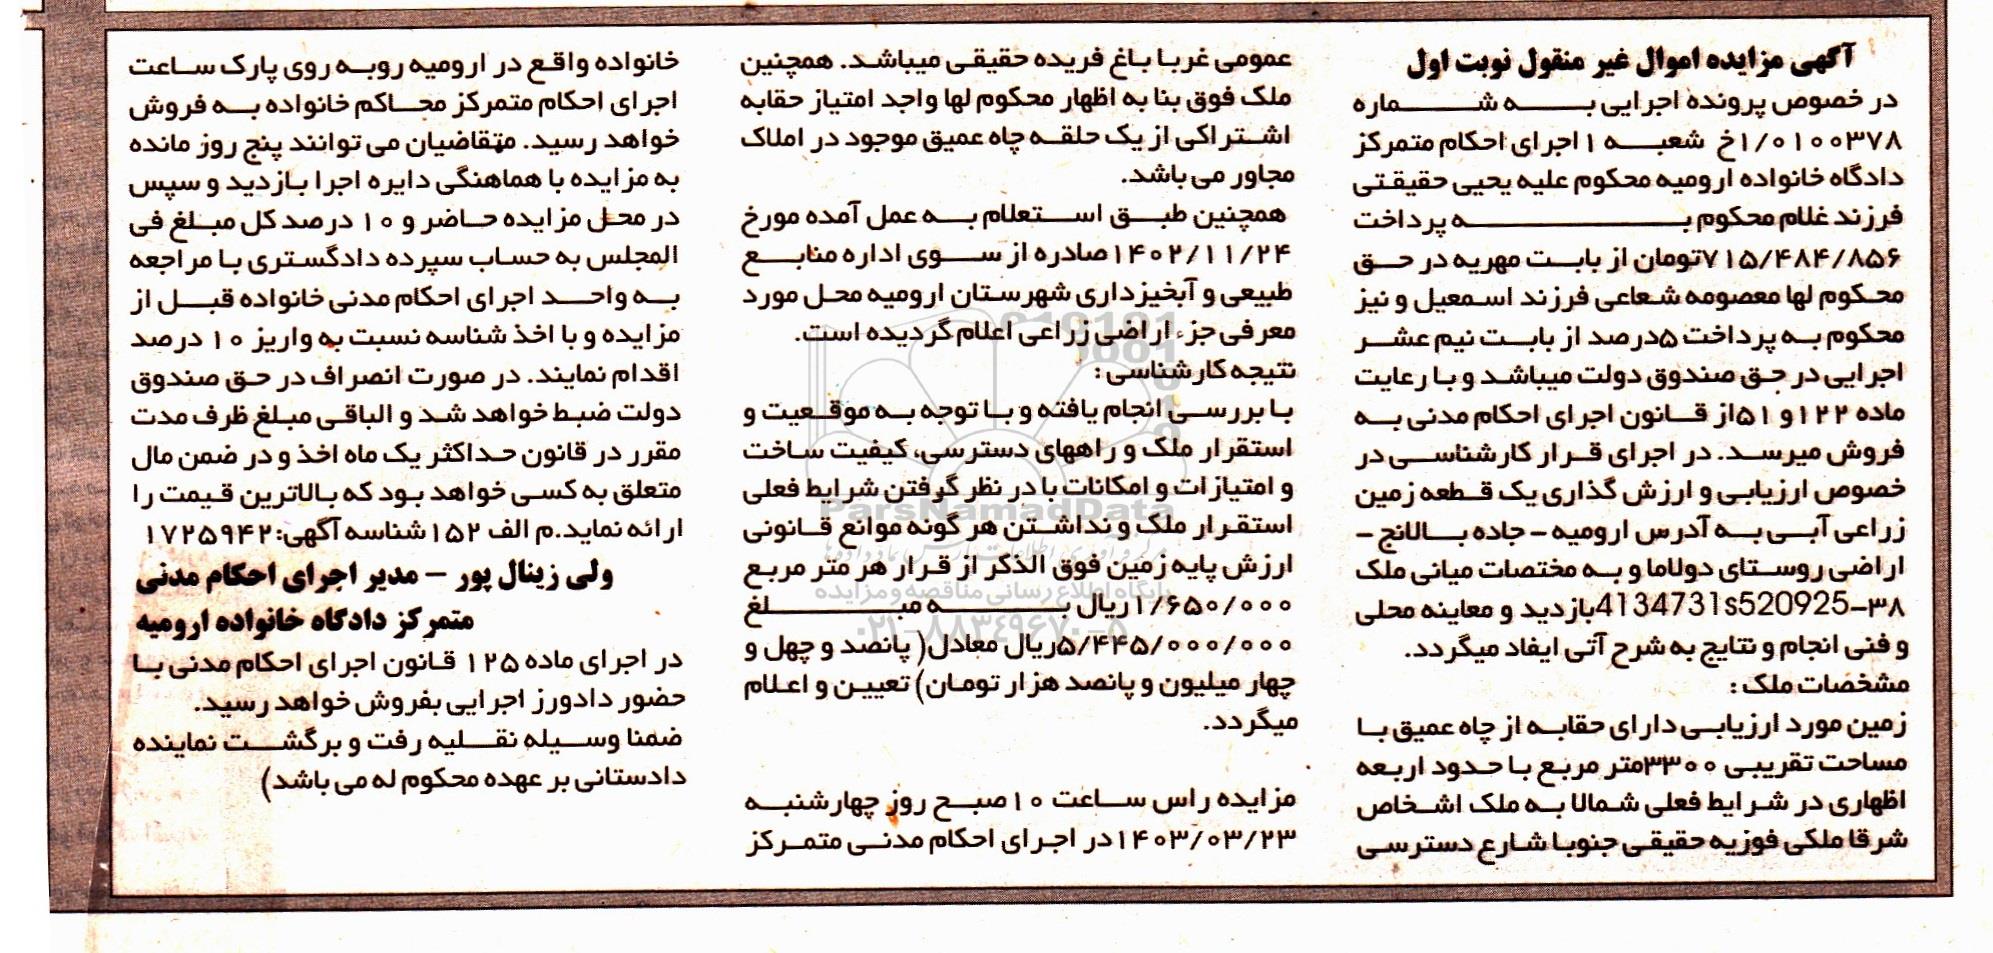 آگهی مزایده اموال غیر منقول نوبت اول
در خصوص پرونده اجرایی به شماره
۱/۰۱۰۰۳۷۸خ شعبه ۱ اجرای احکام متمرکز
دادگاه خانواده ارومیه محکوم علیه یحیی حقیقتی
فرزند غلام محکوم به پرداخت
۷۱۵/۴۸۴/۸۵۶تومان از بابت مهریه در حق
محکوم لها معصومه شعاعی فرزند اسمعیل و نیز
محکوم به پرداخت ۵درصد از بابت نیم عشر
اجرایی در حق صندوق دولت میباشد و با رعایت
ماده ۱۲۲و ۵۱از قانون اجرای احکام مدنی به
فروش میرسد. در اجرای قرار کارشناسی در
خصوص ارزیابی و ارزش گذاری یک قطعه زمین
زراعی آبی به آدرس ارومیه - جاده بالانج -
اراضی روستای دولاما و به مختصات میانی ملک
۳۸-4134731s520925بازدید و معاینه محلی
و فنی انجام و نتایج به شرح آتی ایفاد میگردد.
مشخصات ملک :
زمین مورد ارزیابی دارای حقابه از چاه عمیق با
مساحت تقریبی ۳۳۰۰متر مربع با حدود اربعه
اظهاری در شرایط فعلی شمالا به ملک اشخاص
شرقا ملکی فوزیه حقیقی جنوبا شارع دسترسی
عمومی غربا باغ فریده حقیقی میباشد. همچنین
ملک فوق بنا به اظهار محکوم لها واجد امتیاز حقابه
اشتراکی از یک حلقه چاه عمیق موجود در املاک
مجاور می باشد.
همچنین طبق استعلام به عمل آمده مورخ
۱۴۰۲/۱۱/۲۴صادره از سوی اداره منابع
طبیعی و آبخیزداری شهرستان ارومیه محل مورد
معرفی جزء اراضی زراعی اعلام گردیده است.
نتیجه کارشناسی :
با بررسی انجام یافته و با توجه به موقعیت و
استقرار ملک و راههای دسترسی، کیفیت ساخت
و امتیازات و امکانات با در نظر گرفتن شرایط فعلی
استقرار ملک و نداشتن هر گونه موانع قانونی
ارزش پایه زمین فوق الذکر از قرار هر متر مربع
۱/۶۵۰/۰۰۰ریال به مبلغ
۵/۴۴۵/۰۰۰/۰۰۰ریال معادل( پانصد و چهل و
چهار میلیون و پانصد هزار تومان) تعیین و اعلام
میگردد.
مزایده راس ساعت ۱۰صبح روز چهارشنبه
۱۴۰۳/۰۳/۲۳در اجرای احکام مدنی متمرکز
خانواده واقع در ارومیه روبه روی پارک ساعت
اجرای احکام متمرکز محاکم خانواده به فروش
خواهد رسید. متقاضیان می توانند پنج روز مانده
به مزایده با هماهنگی دایره اجرا بازدید و سپس
در محل مزایده حاضر و ۱۰ درصد کل مبلغ فی
المجلس به حساب سپرده دادگستری با مراجعه
به واحد اجرای احکام مدنی خانواده قبل از
مزایده و با اخذ شناسه نسبت به واریز ۱۰ درصد
اقدام نمایند. در صورت انصراف در حق صندوق
دولت ضبط خواهد شد و الباقی مبلغ ظرف مدت
مقرر در قانون حداکثر یک ماه اخذ و در ضمن مال
متعلق به کسی خواهد بود که بالاترین قیمت را
ارائه نماید.م الف ۱۵۲ شناسه آگهی:۱۷۲۵۹۴۲
ولی زینال پور - مدیر اجرای احکام مدنی
متمرکز دادگاه خانواده ارومیه
در اجرای ماده ۱۲۵ قانون اجرای احکام مدنی با
حضور دادورز اجرایی بفروش خواهد رسید.
ضمنا وسیله نقلیه رفت و برگشت نماینده
دادستانی بر عهده محکوم له می باشد)
ParsNamadData
پایگاه اطلاع رسانی مناقصه و مزایده
۰۲۱-۸۸۳۴۹۶۷۰-۵